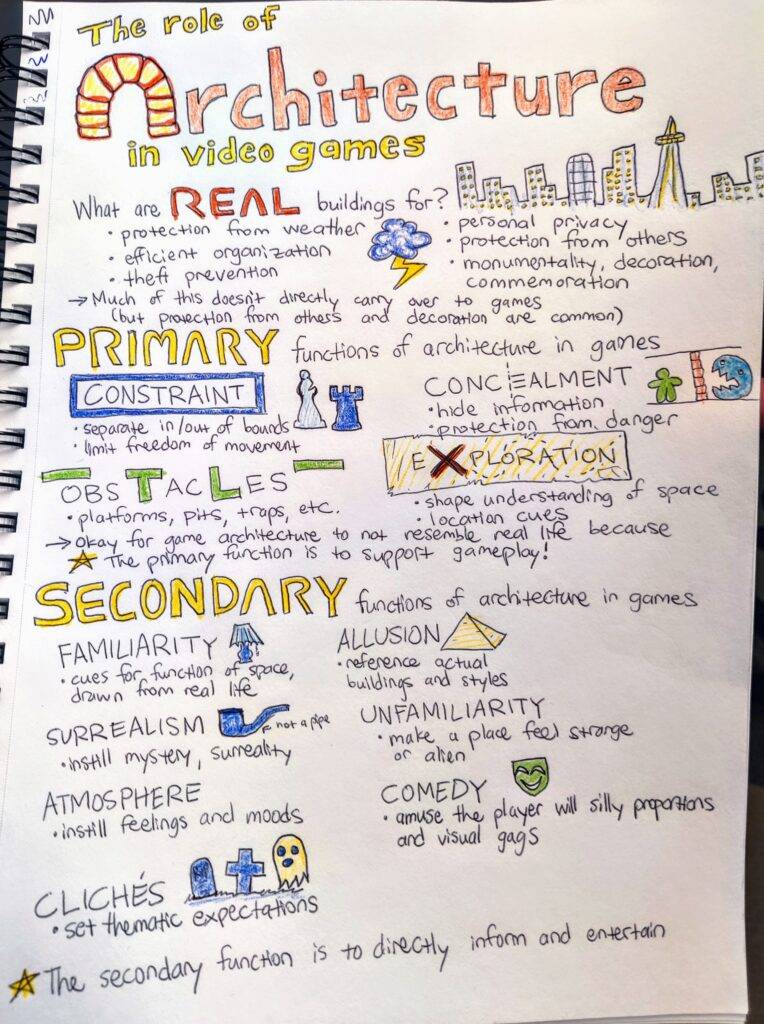 The role of
Architecture
in video games
What are REAL buildings for?
• protection from weather
• efficient organization
• theft prevention
• personal privacy
• protection from others
• monumentality, decoration,
commemoration
→ Much of this doesn't directly carry over to games
(but protection from others and decoration are common)
PRIMARY functions of architecture in games
CONSTRAINT
• separate in/out of bounds
• limit freedom of movement
CONCEALMENT
• hide information
• protection from danger
OBSTACLES
• platforms, pits, traps, etc.
EXPLORATION
• shape understanding of space
• location cues
→ Okay for game architecture to not resemble real life because
☆ The primary function is to support gameplay!
SECONDARY functions of architecture in games
FAMILIARITY
• cues for function of space,
drawn from real life
ALLUSION
• reference actual
buildings and styles
SURREALISM
← not a pipe
• instill mystery, surreality
UNFAMILIARITY
• make a place feel strange
or alien
ATMOSPHERE
• instill feelings and moods
COMEDY
• amuse the player will silly proportions
and visual gags
CLICHÉS
• set thematic expectations
☆ The secondary function is to directly inform and entertain